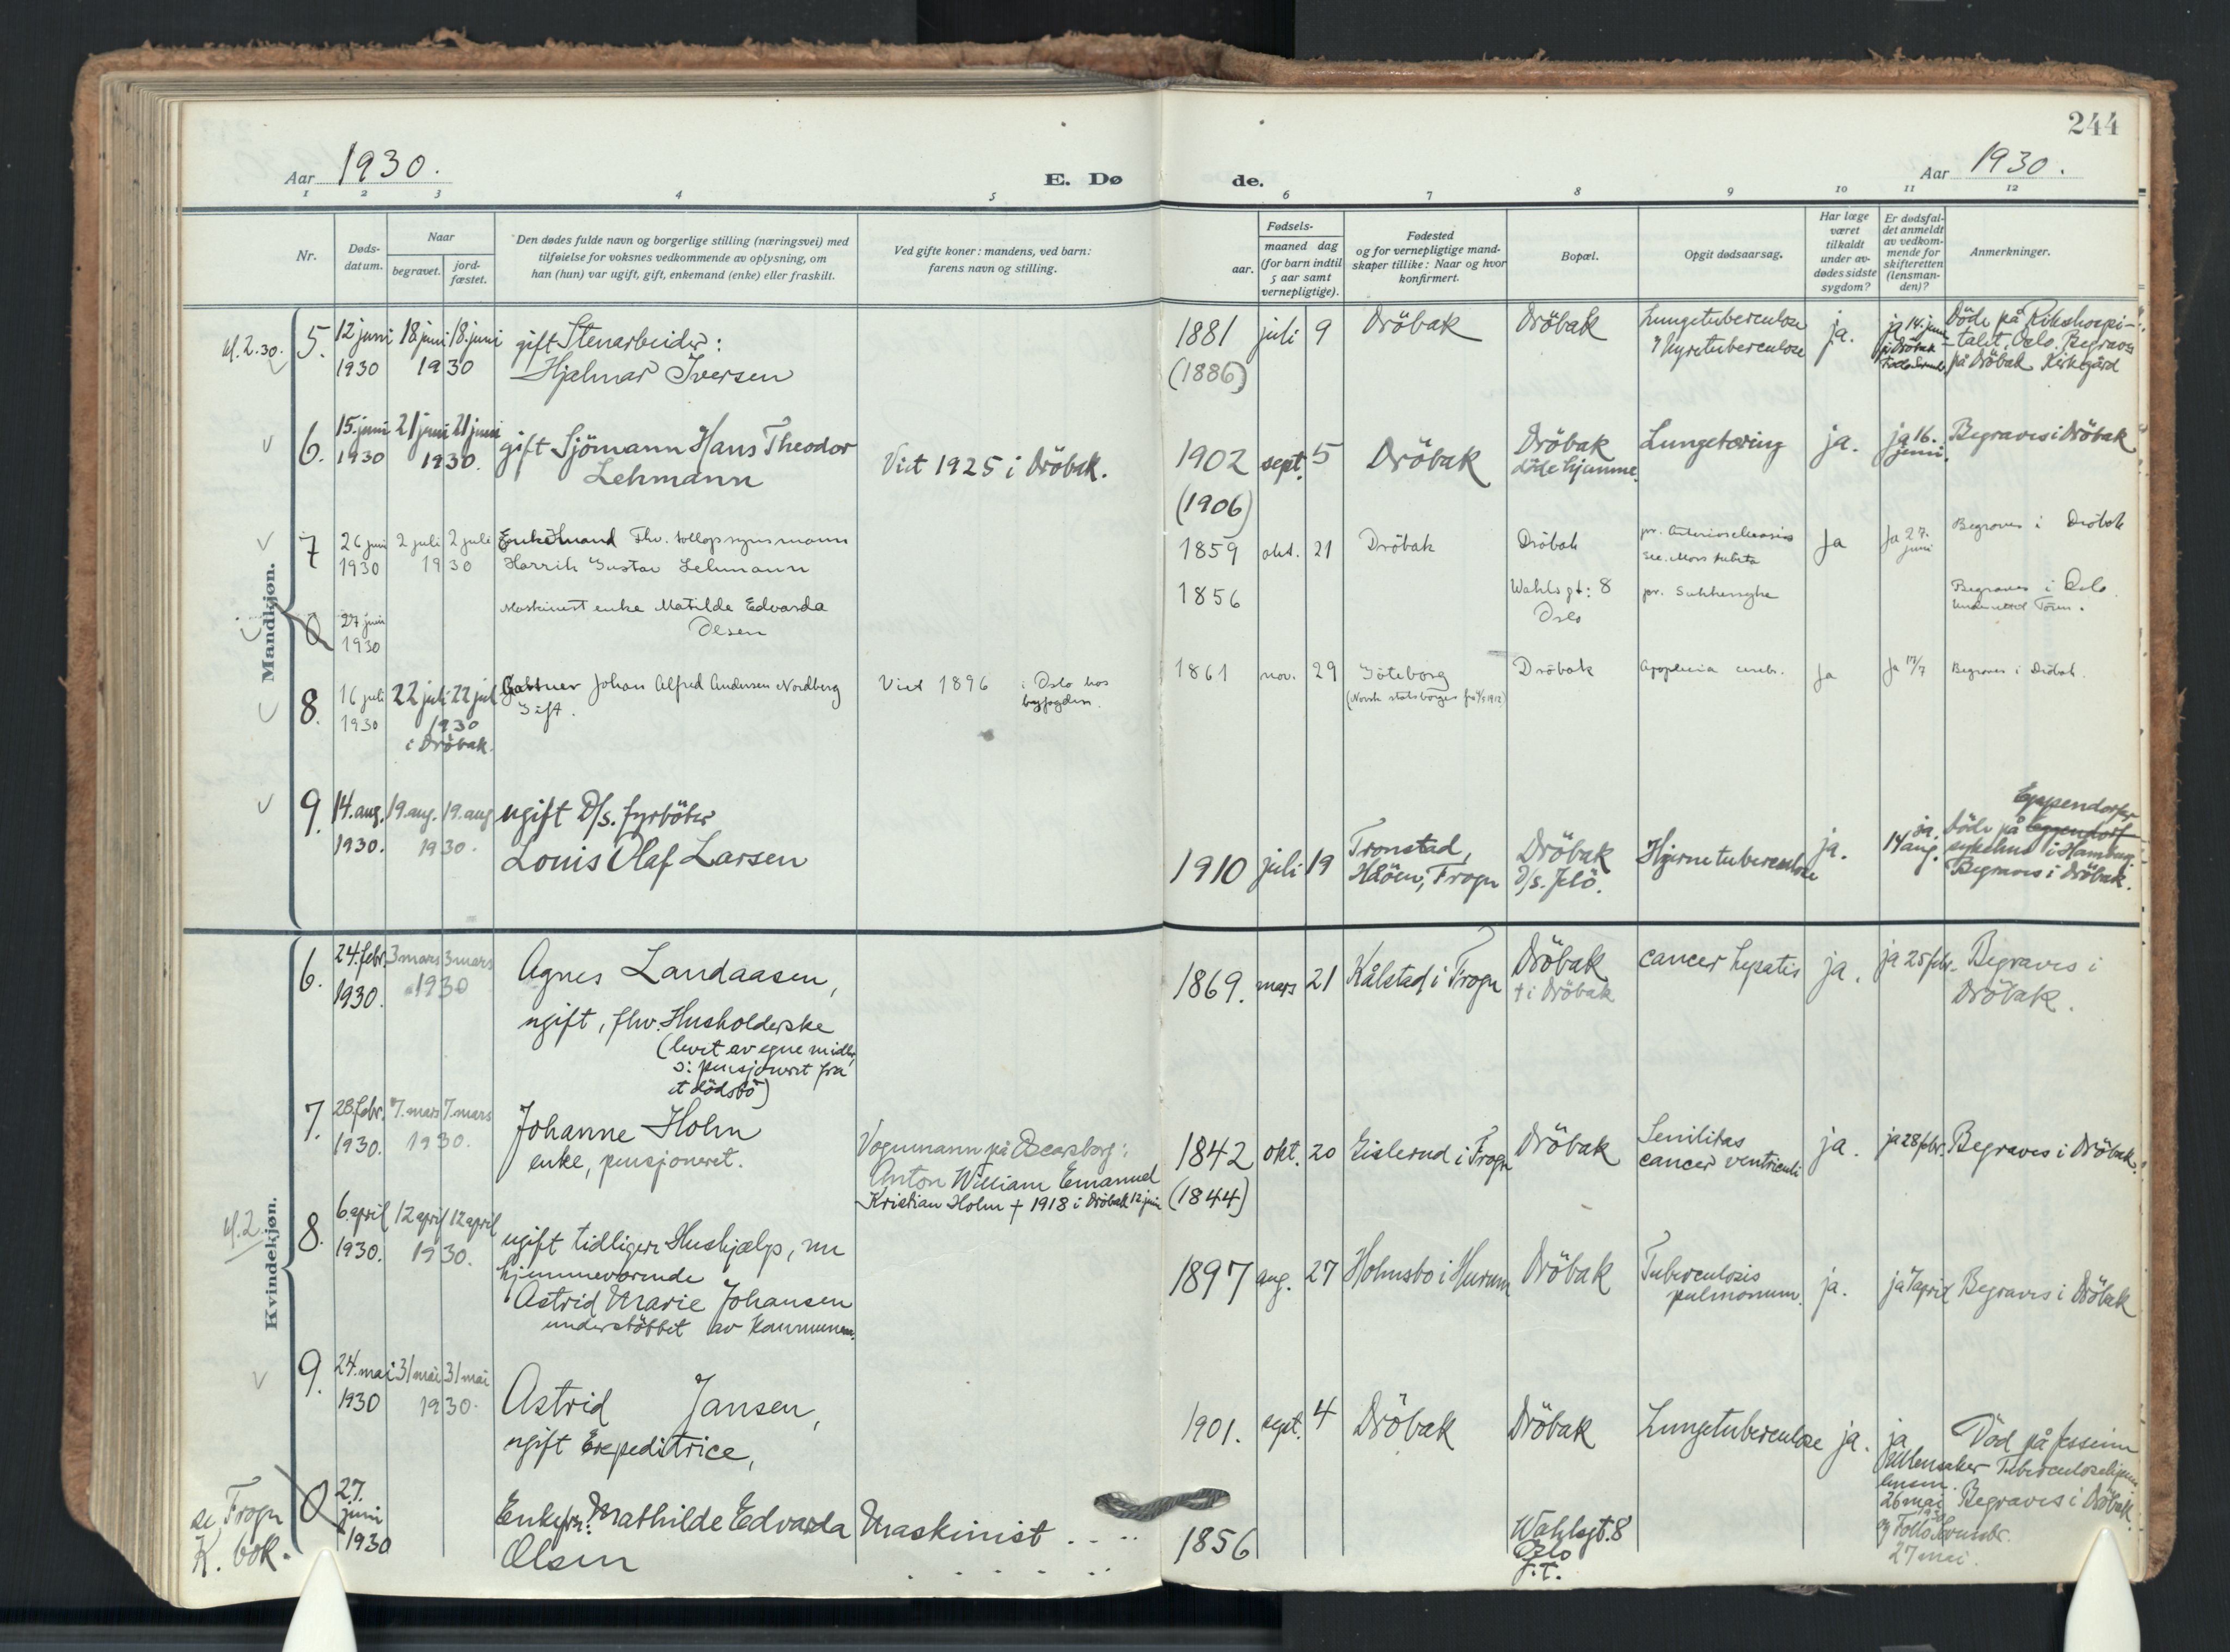 244
Aar 1930.
E. Dø
de.
Aar 1930.
1 2 3 4 5 6 7 8 9 10 11 12
Nr.
Døds-
datum.
Naar
begravet.
jord-
fæstet.
Den dødes fulde navn og borgerlige stilling (næringsvei) med
tilføielse for voksnes vedkommende av oplysning, om
han (hun) var ugift, gift, enkemand (enke) eller fraskilt.
Ved gifte koner: mandens, ved barn:
farens navn og stilling.
Fødsels-
aar.
maaned dag
(for barn indtil
5 aar samt
vernepligtige).
Fødested
og for vernepligtige mand-
skaper tillike: Naar og hvor
konfirmert.
Bopæl.
Opgit dødsaarsag.
Har læge
været
tilkaldt
under av-
dødes sidste
sygdom?
Er dødsfal-
det anmeldt
av vedkom-
mende for
skifteretten
(lensman-
den)?
Anmerkninger.
Mandkjøn.
kl. 2.30.
5. 12 juni 18. juni 18. juni
1930 1930
gift Stenarbeider:
Hjalmar Iversen
1881 juli 9
(1886)
Dröbak
Dröbak
Lungetuberculose
Nyretuberculose
ja.
ja 14. juni
Döde på Rikshospi-
talet, Oslo. Begraves
på Dröbak Kirkegård
6. 15. juni 21 juni 21 juni
1930 1930.
gift Sjömann Hans Theodor
Lehmann
Viet 1925 i Dröbak.
1902 sept. 5
(1906)
Dröbak
Dröbak
döde hjemme.
Lungetæring
ja.
ja 16.
juni.
Begraves i Dröbak
7 26 juni 2 juli 2 juli
1930 1930
Enkemand Fhv. tollopsynsmann
Harrik Gustav Lehmann
1859 okt. 21
Dröbak
Dröbak
pr. Arteriosclerosis
sec. Mors subita
Ja
Ja 27.
juni
Begraves i Dröbak
0 27 juni
1930
Maskinist enke Matilde Edvarda
Olsen
1856
Wahlsgt: 8
Oslo
pr. Sukkersyke
Begraves i Oslo.
8. 16 juli 22 juli 22 juli
1930 1930
i Dröbak.
Gartner Johan Alfred Andersen Nordberg
Gift.
Viet 1896 i Oslo hos
byfogden.
1861 nov. 29
Göteborg
(Norsk statsborger
Dröbak
Apoplexia cereb.
Ja
Ja 17/7
Begraves i Dröbak.
9. 14. aug. 19. aug. 19. aug
1930. 1930.
ugift D/s. fyrböter
Louis Olaf Larsen
1910 juli 19
Tronstad,
Håöen, Frogn
Dröbak
D/s. Jelö.
Hjernetuberculose
ja.
ja.
14 aug.
Eppendorfer
Döde på Eppendorf
sykehus i Hamburg.
Begraves i Dröbak.
Kvindekjøn.
6. 24. febr. 3 mars 3 mars
1930. 1930
Agnes Landaasen,
ugift, fhv. Husholderske
(levet av egne midler,
ɔ: pensjonert fra
et dödsbö)
1869. mars 21
Kålstad i Frogn
Dröbak
† i Dröbak
cancer hepatis
ja.
ja 25 febr.
Begraves i
Dröbak.
7. 28. febr. 7. mars 7. mars
1930. 1930.
Johanne Holm
enke, pensjoneret.
Vognmann på Oscarsborg:
Anton William Emanuel
Kristian Holm † 1918 i Dröbak 12 juni
1842 okt. 20
(1844)
Gislerud i Frogn
Dröbak
Senilitas
cancer ventriculi
ja.
ja 28 febr.
Begraves i Dröbak.
kl. 2
8. 6. april 12 april 12 april
1930. 1930.
ugift tidligere Hushjælp, nu
hjemmeværende
Astrid Marie Johansen
understöttet av Kommunen.
1897 aug. 27
Holmsbo i Hurum
Dröbak
Tuberculosis
pulmonum.
ja.
ja 7 april
Begraves i Dröbak
9. 24. mai 31 mai 31 mai
1930 1930.
Astrid Jansen,
ugift Expeditrice,
1901. sept. 4
Dröbak
Dröbak
Lungetuberculose
ja.
ja
Ullensaker
lensm.
26 mai
27 mai.
Död på Jessheim
Tuberculosehjem
Begraves i Dröbak.
se Frogn
K. bok.
0 27.
juni
1930
Enkefru: Mathilde Edvarda
Olsen
Maskinist . . . .
1856
Wahlsgt. 8
Oslo
f. t.